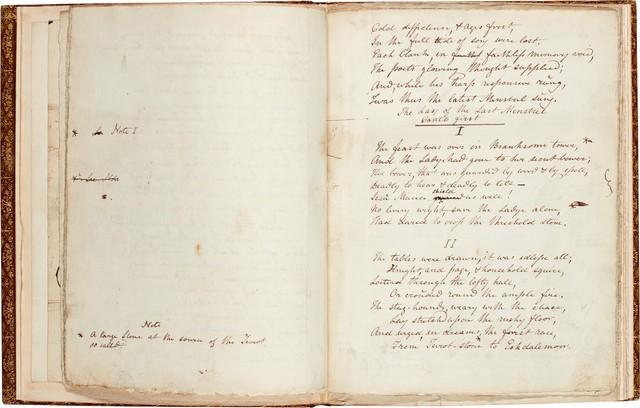 * See Note I
* See Note
Note
* A large Stone at the source of the Tiviot
so called
Cold diffidence, & Ages frost,
In the full tide of song were lost.
Each blank, in faithless memory void,
The poets glowing thought supplied;
And, while his Harp responsive rung,
Twas thus the latest Minstrel sung.
The Lay of the Last Minstrel
Canto first
I
The feast was over in Branksome tower, *
And the Ladye had gone to her secret bower;
Her bower, that was guarded by word & by spell,
Deadly to hear & deadly to tell —
Jesu Maria shield us well!
No living wight, save the Ladye alone,
Had dared to cross the threshold stone.
II
The tables were drawn, it was idlesse all;
Knight, and page, & household squire,
Loitered through the lofty hall,
Or crowded round the ample fire.
The stag-hounds, weary with the chace,
Lay stretched upon the rushy floor,
And urged in dreams, the forest race,
From Tiviot-stone * to Eskdalemoor.